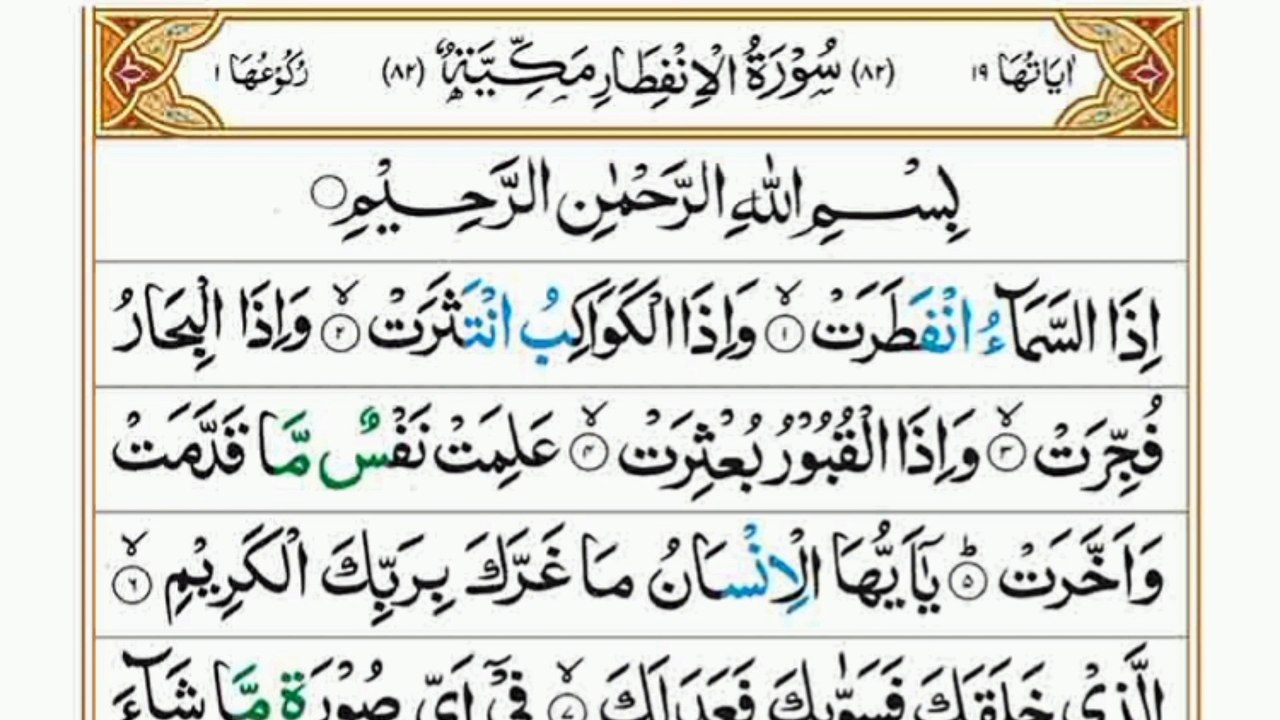 اٰيَاتُهَا ١٩ (٨٢) سُوْرَةُ الْاِنْفِطَارِ مَكِّيَّةٌ (٨٢) رُكُوْعُهَا ١
بِسْمِ اللّٰهِ الرَّحْمٰنِ الرَّحِيْمِ
اِذَا السَّمَآءُ انْفَطَرَتْ ۙ﴿١﴾ وَاِذَا الْكَوَاكِبُ انْتَثَرَتْ ۙ﴿٢﴾ وَاِذَا الْبِحَارُ
فُجِّرَتْ ۙ﴿٣﴾ وَاِذَا الْقُبُوْرُ بُعْثِرَتْ ۙ﴿٤﴾ عَلِمَتْ نَفْسٌ مَّا قَدَّمَتْ
وَاَخَّرَتْ ؕ﴿٥﴾ يٰۤاَيُّهَا الْاِنْسَانُ مَا غَرَّكَ بِرَبِّكَ الْكَرِيْمِ ۙ﴿٦﴾
الَّذِيْ خَلَقَكَ فَسَوّٰىكَ فَعَدَلَكَ ۙ﴿٧﴾ فِيْۤ اَيِّ صُوْرَةٍ مَّا شَآءَ